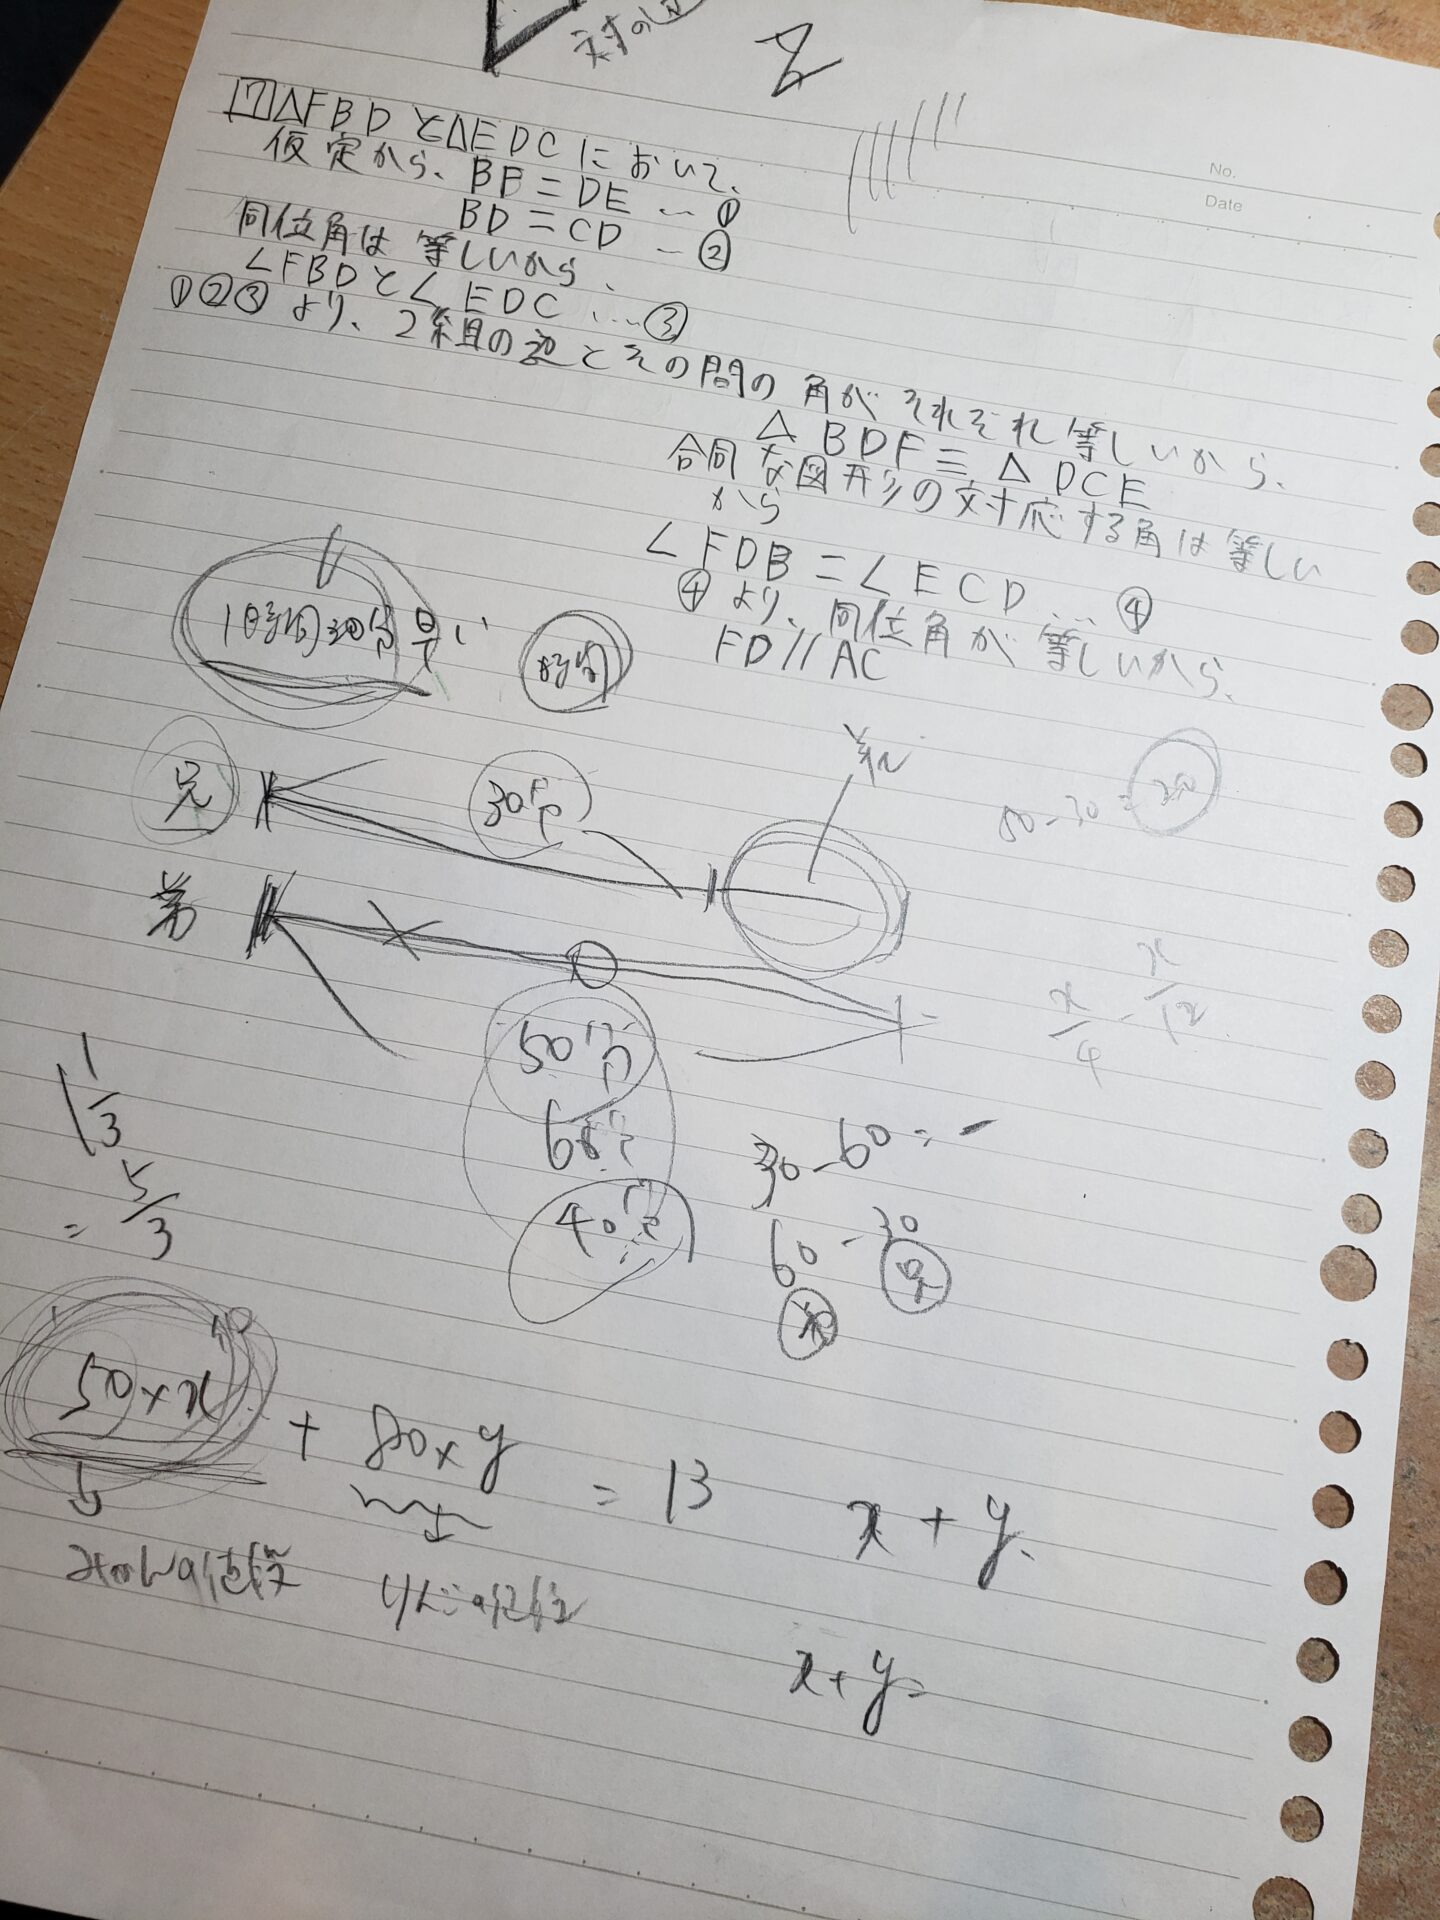 対の
No.
Date
7 △FBDと△EDCにおいて、
仮定から、BF=DE…①
BD=CD…②
同位角は等しいから、
∠FBDと∠EDC…③
①②③より、2組の辺とその間の角がそれぞれ等しいから、
△BDF≡△DCE
合同な図形の対応する角は等しい
から
∠FDB=∠ECD…④
④より、同位角が等しいから、
FD//AC
1時間30分早い
兄
30分
差
50-30=20
弟
50分
60分
40分
x/4-x/12
1 1/3
=5/3
30-60=-
60-30
弟
兄
50×x+80×y=13
x+y
みかんの値段
りんごの値段
x+y=